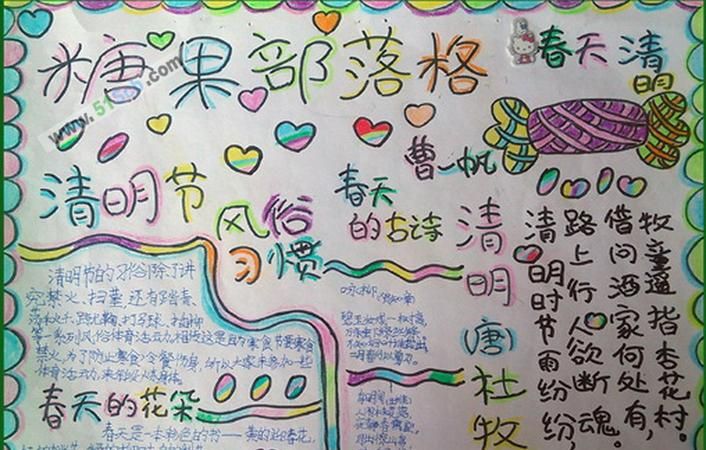 糖果部落格
春天清
明
曹一帆
清明节
风俗
习惯
春天
的古诗
清明(唐)杜牧
清明时节雨纷纷,
路上行人欲断魂。
借问酒家何处有,
牧童遥指杏花村。
清明节的习俗除了讲
究禁火、扫墓,还有踏青、
荡秋千、蹴鞠、打马球、插柳
等一系列风俗体育活动。相传这是因为寒食节要寒食
禁火,为了防止寒食冷餐伤身,所以大家来参加一些
体育活动,来锻炼身体。
春天的花朵
春天是一本彩色的书——黄的迎春花,
咏柳
碧玉妆成一树高,
万条垂下绿丝绦。